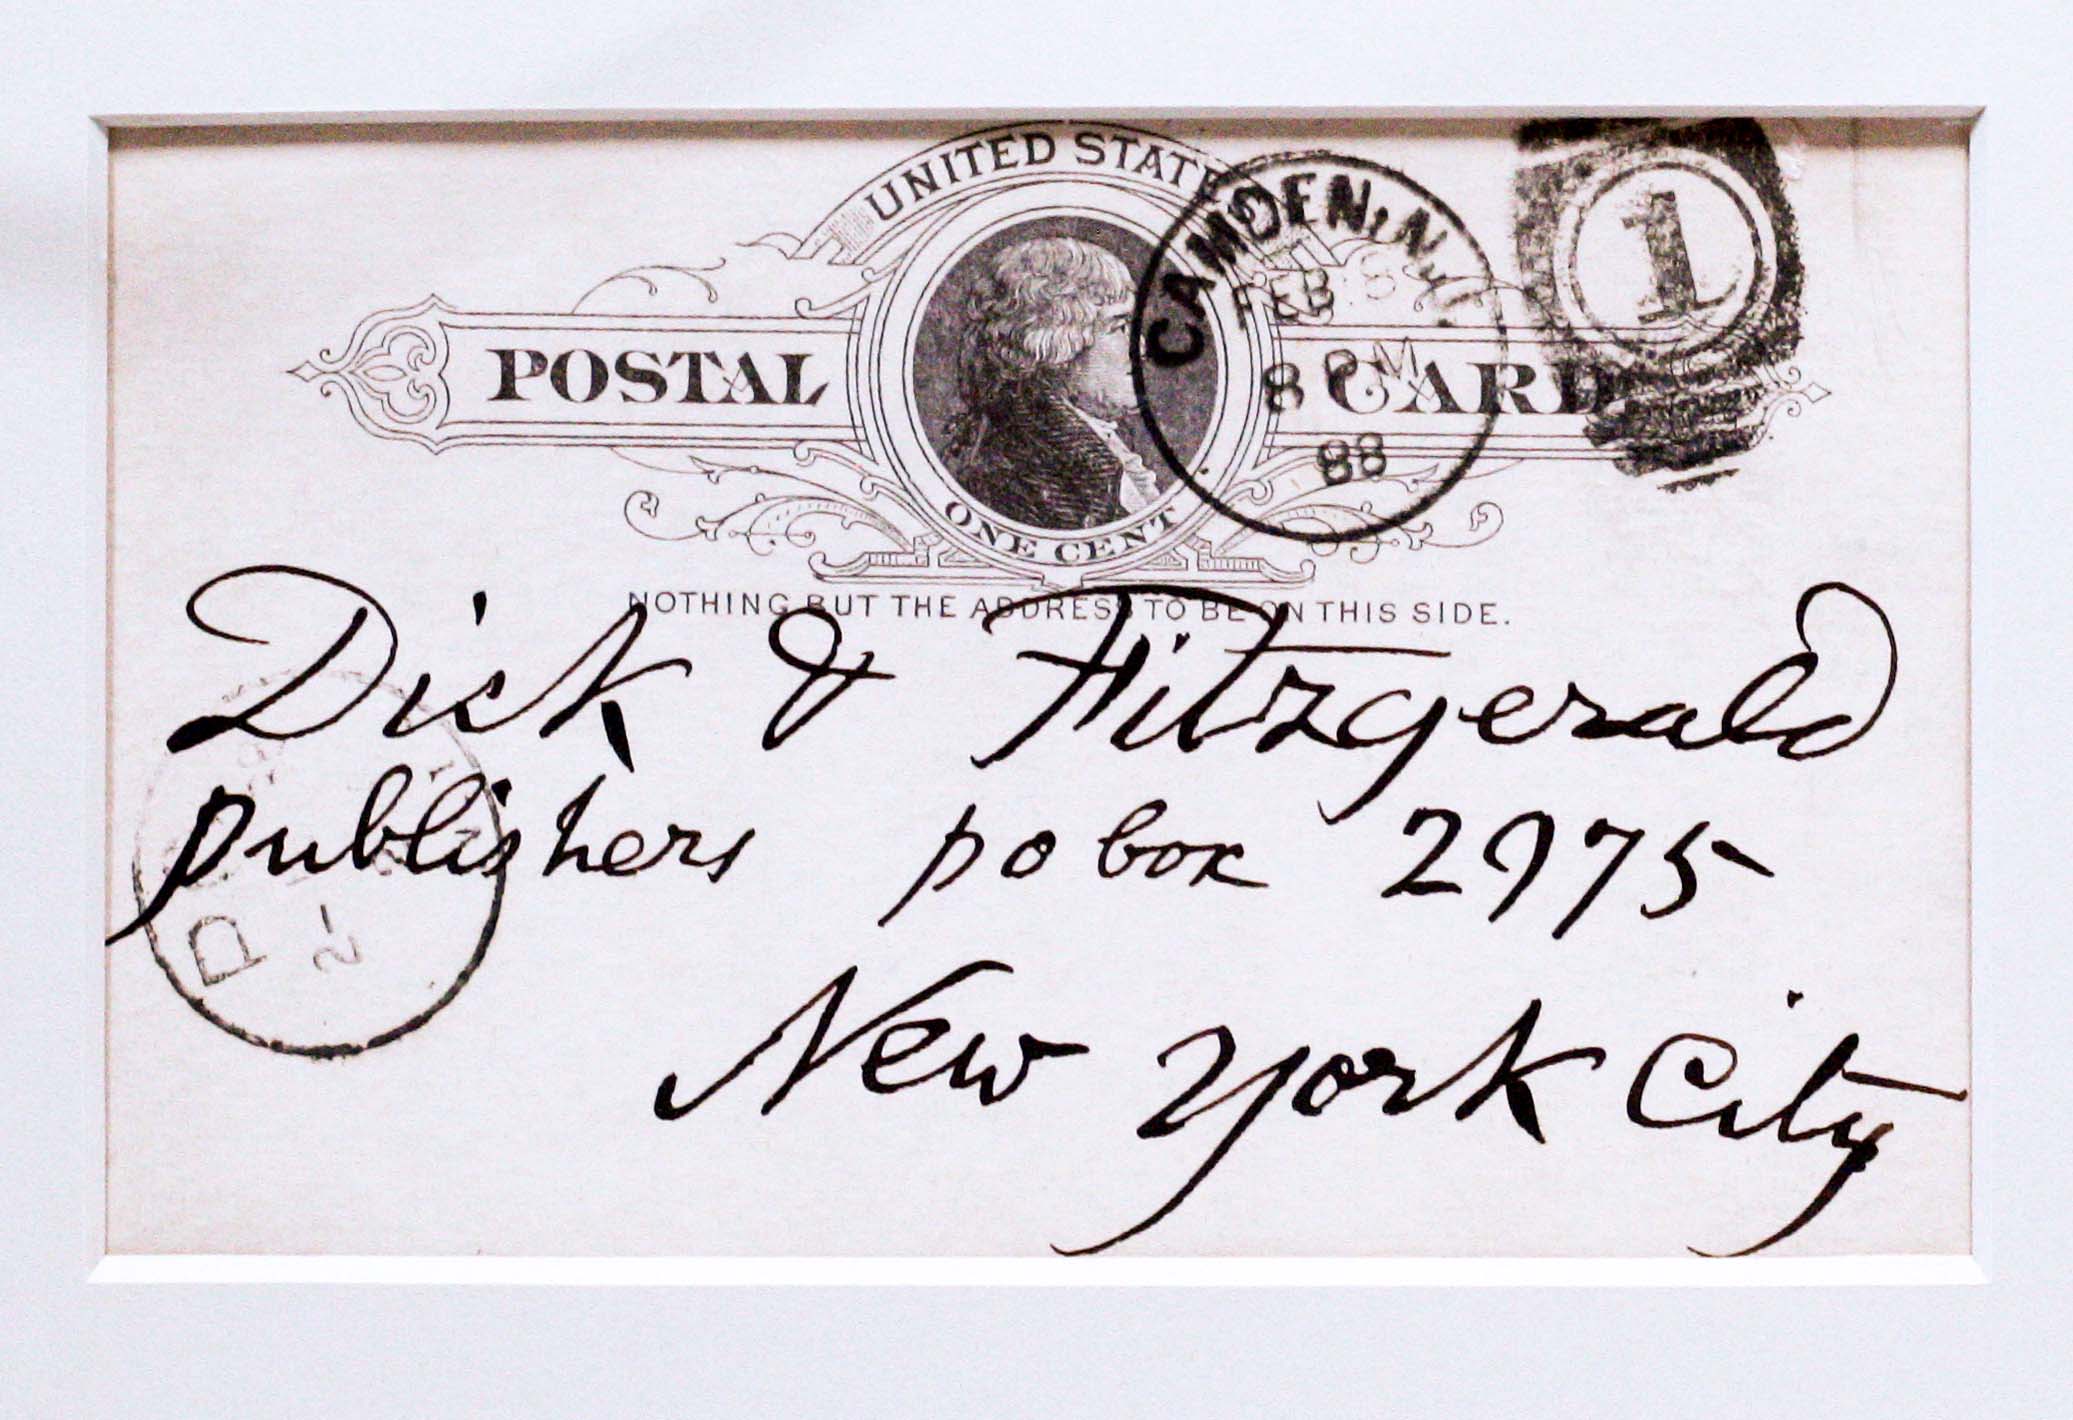 UNITED STATES
POSTAL CARD
ONE CENT
NOTHING BUT THE ADDRESS TO BE ON THIS SIDE.
CAMDEN, N.J.
FEB 8
8 PM
88
1
Dick & Fitzgerald
publishers po box 2975
New York City
D
2-